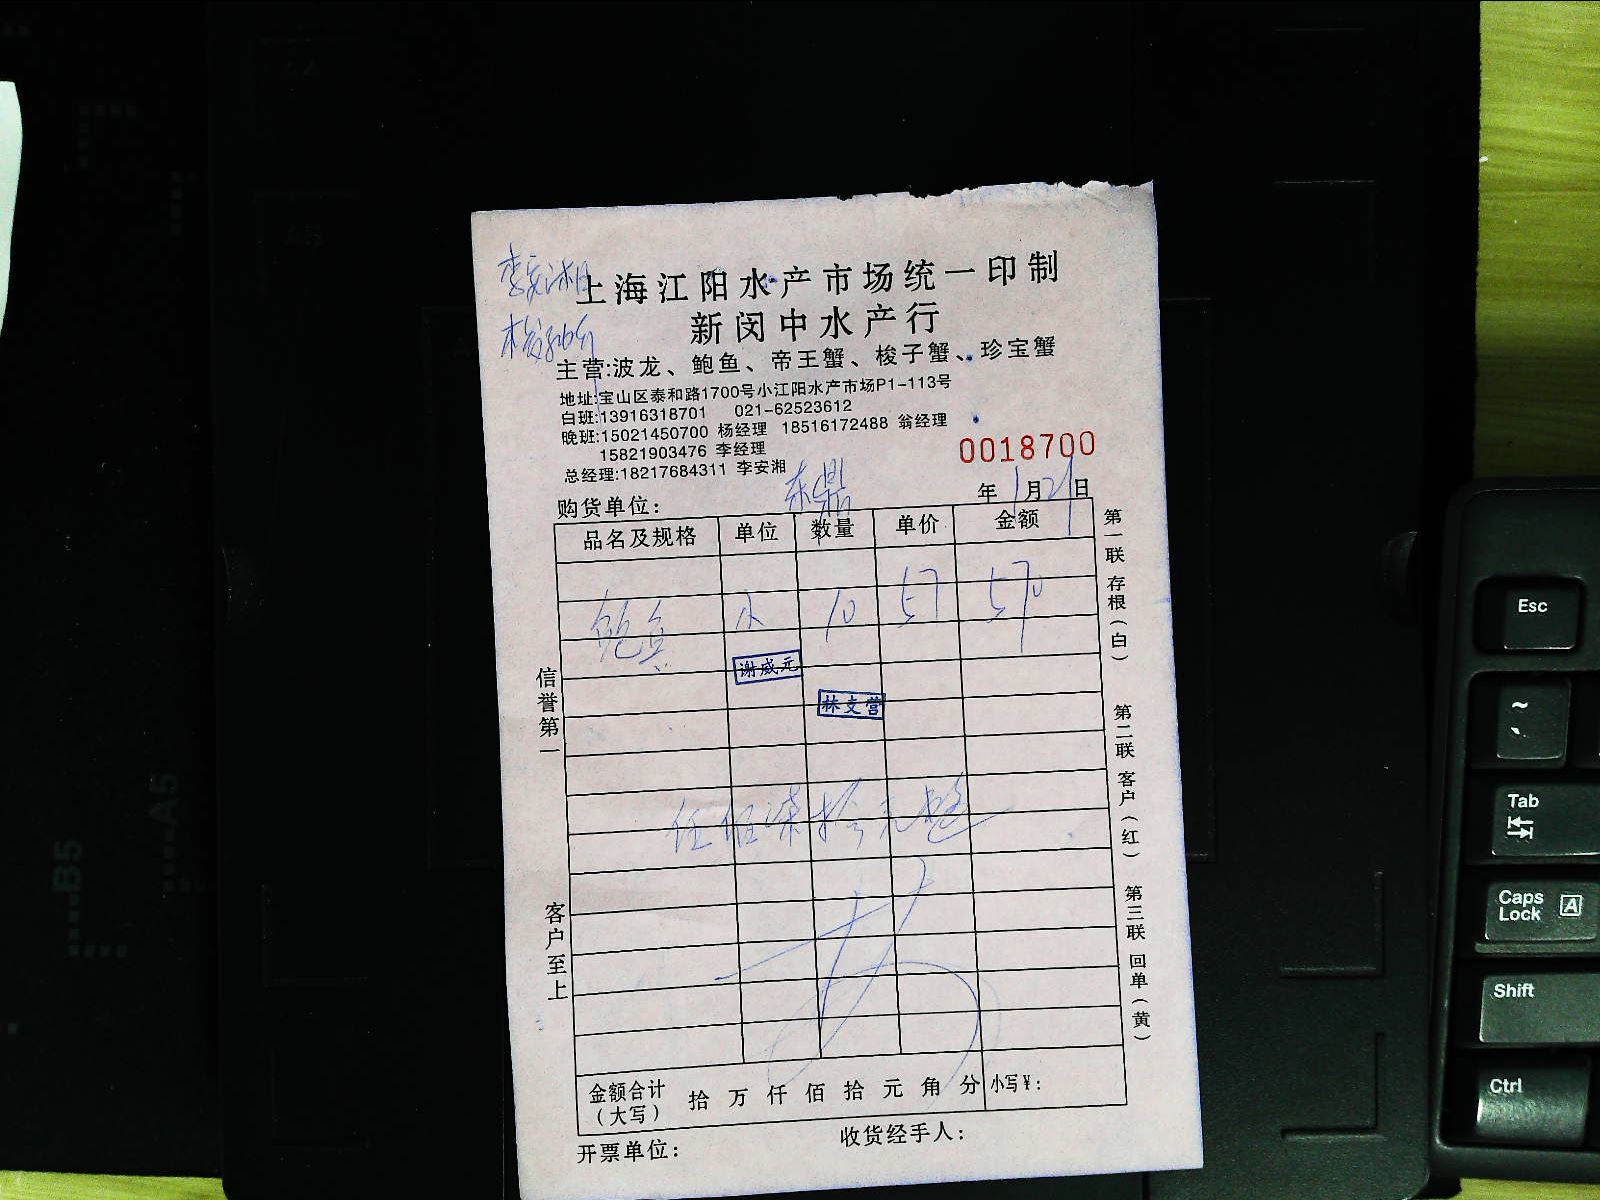 上海江阳水产市场统一印制
新闵中水产行
主营:波龙、鲍鱼、帝王蟹、梭子蟹、珍宝蟹
地址:宝山区泰和路1700号小江阳水产市场P1-113号
白班:13916318701 021-62523612
晚班:15021450700 杨经理 18516172488 翁经理
15821903476 李经理
总经理:18217684311 李安湘
0018700
购货单位: 东鼎 年1月21日
品名及规格 单位 数量 单价 金额
鲍鱼 10 57 570
谢威元
林支营
伍佰柒拾元整
金额合计(大写) 拾 万 仟 佰 拾 元 角 分 小写¥:
开票单位: 收货经手人:
信誉第一
客户至上
第一联 存根(白)
第二联 客户(红)
第三联 回单(黄)
Esc
~
Tab
Caps Lock A
Shift
Ctrl
B5
A5